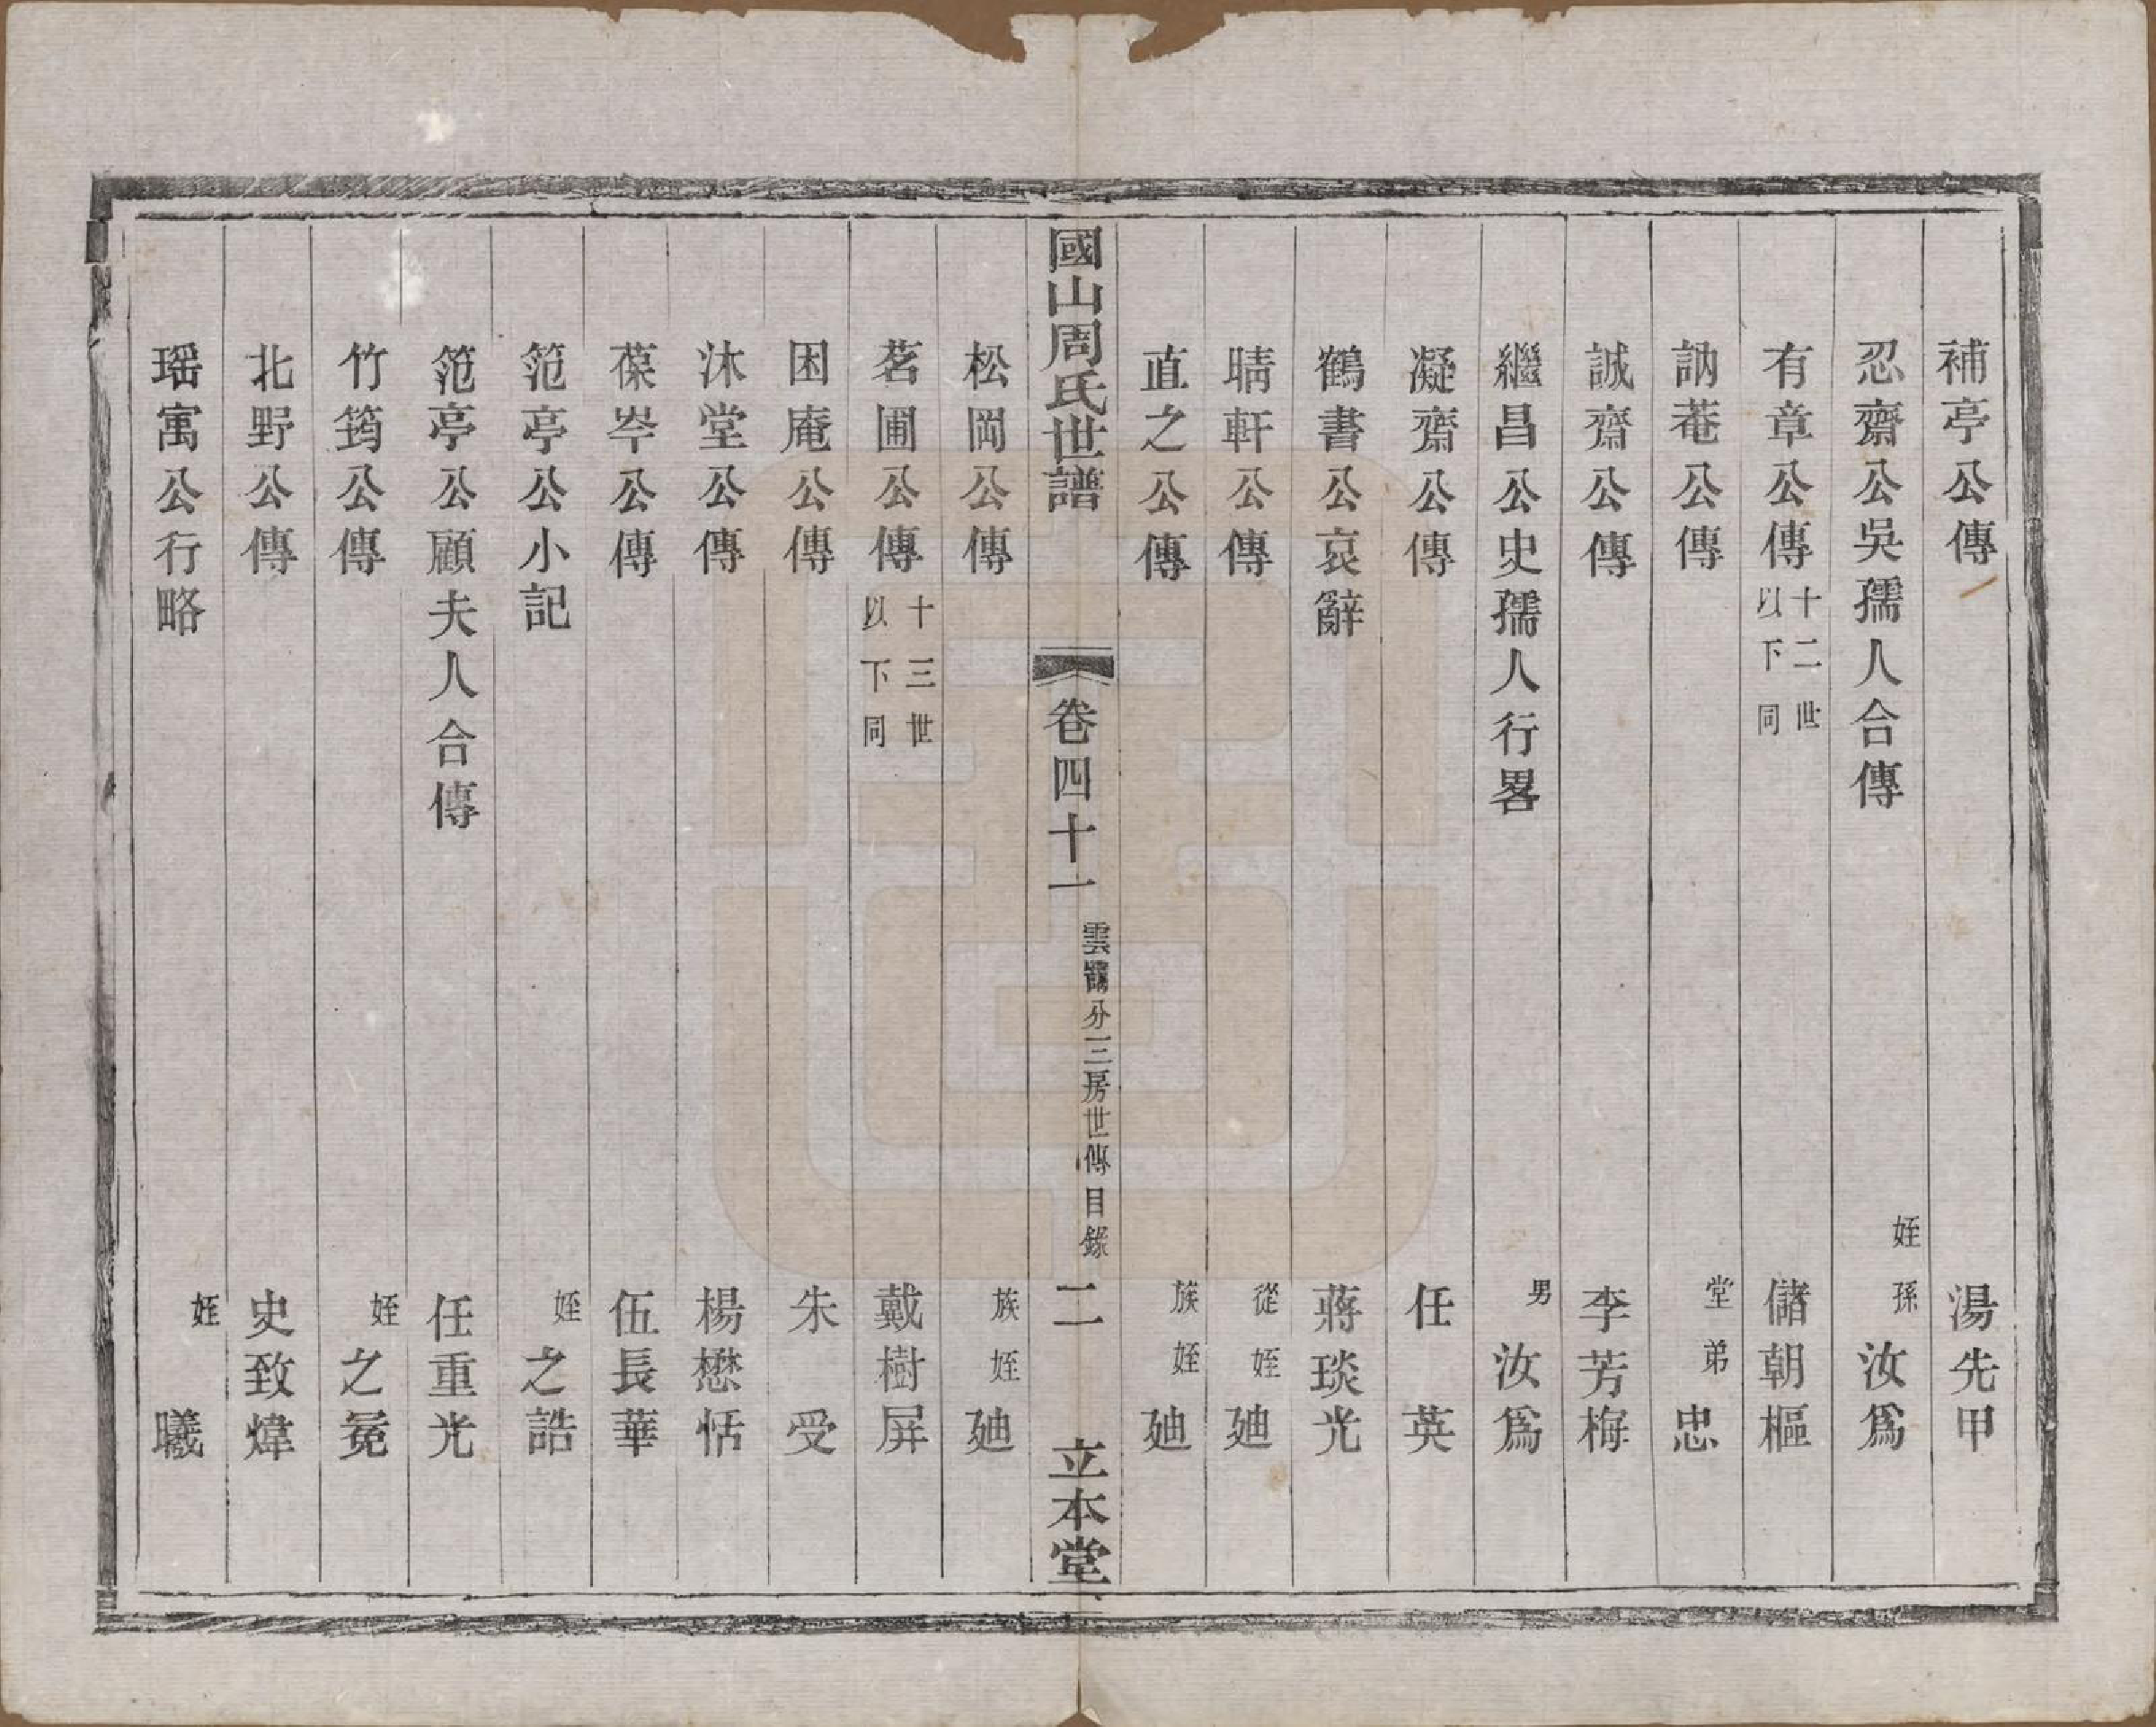 補亭公傳 湯先甲
忍齋公吳孺人合傳 姪孫汝爲
有章公傳 十二世以下同 儲朝樞
訥菴公傳 堂弟忠
誠齋公傳 李芳梅
繼昌公史孺人行畧 男汝爲
凝齋公傳 任英
鶴書公哀辭 蔣琰光
晴軒公傳 從姪廸
直之公傳 族姪廸
國山周氏世譜 卷四十一 雲分三房世傳目錄 二 立本堂
松岡公傳 族姪廸
茗圃公傳 十三世以下同 戴樹屏
困庵公傳 朱受
沐堂公傳 楊懋恬
葆岑公傳 伍長華
笵亭公小記 姪之誥
笵亭公顧夫人合傳 任重光
竹筠公傳 姪之冕
北野公傳 史致煒
瑶寓公行略 姪曦